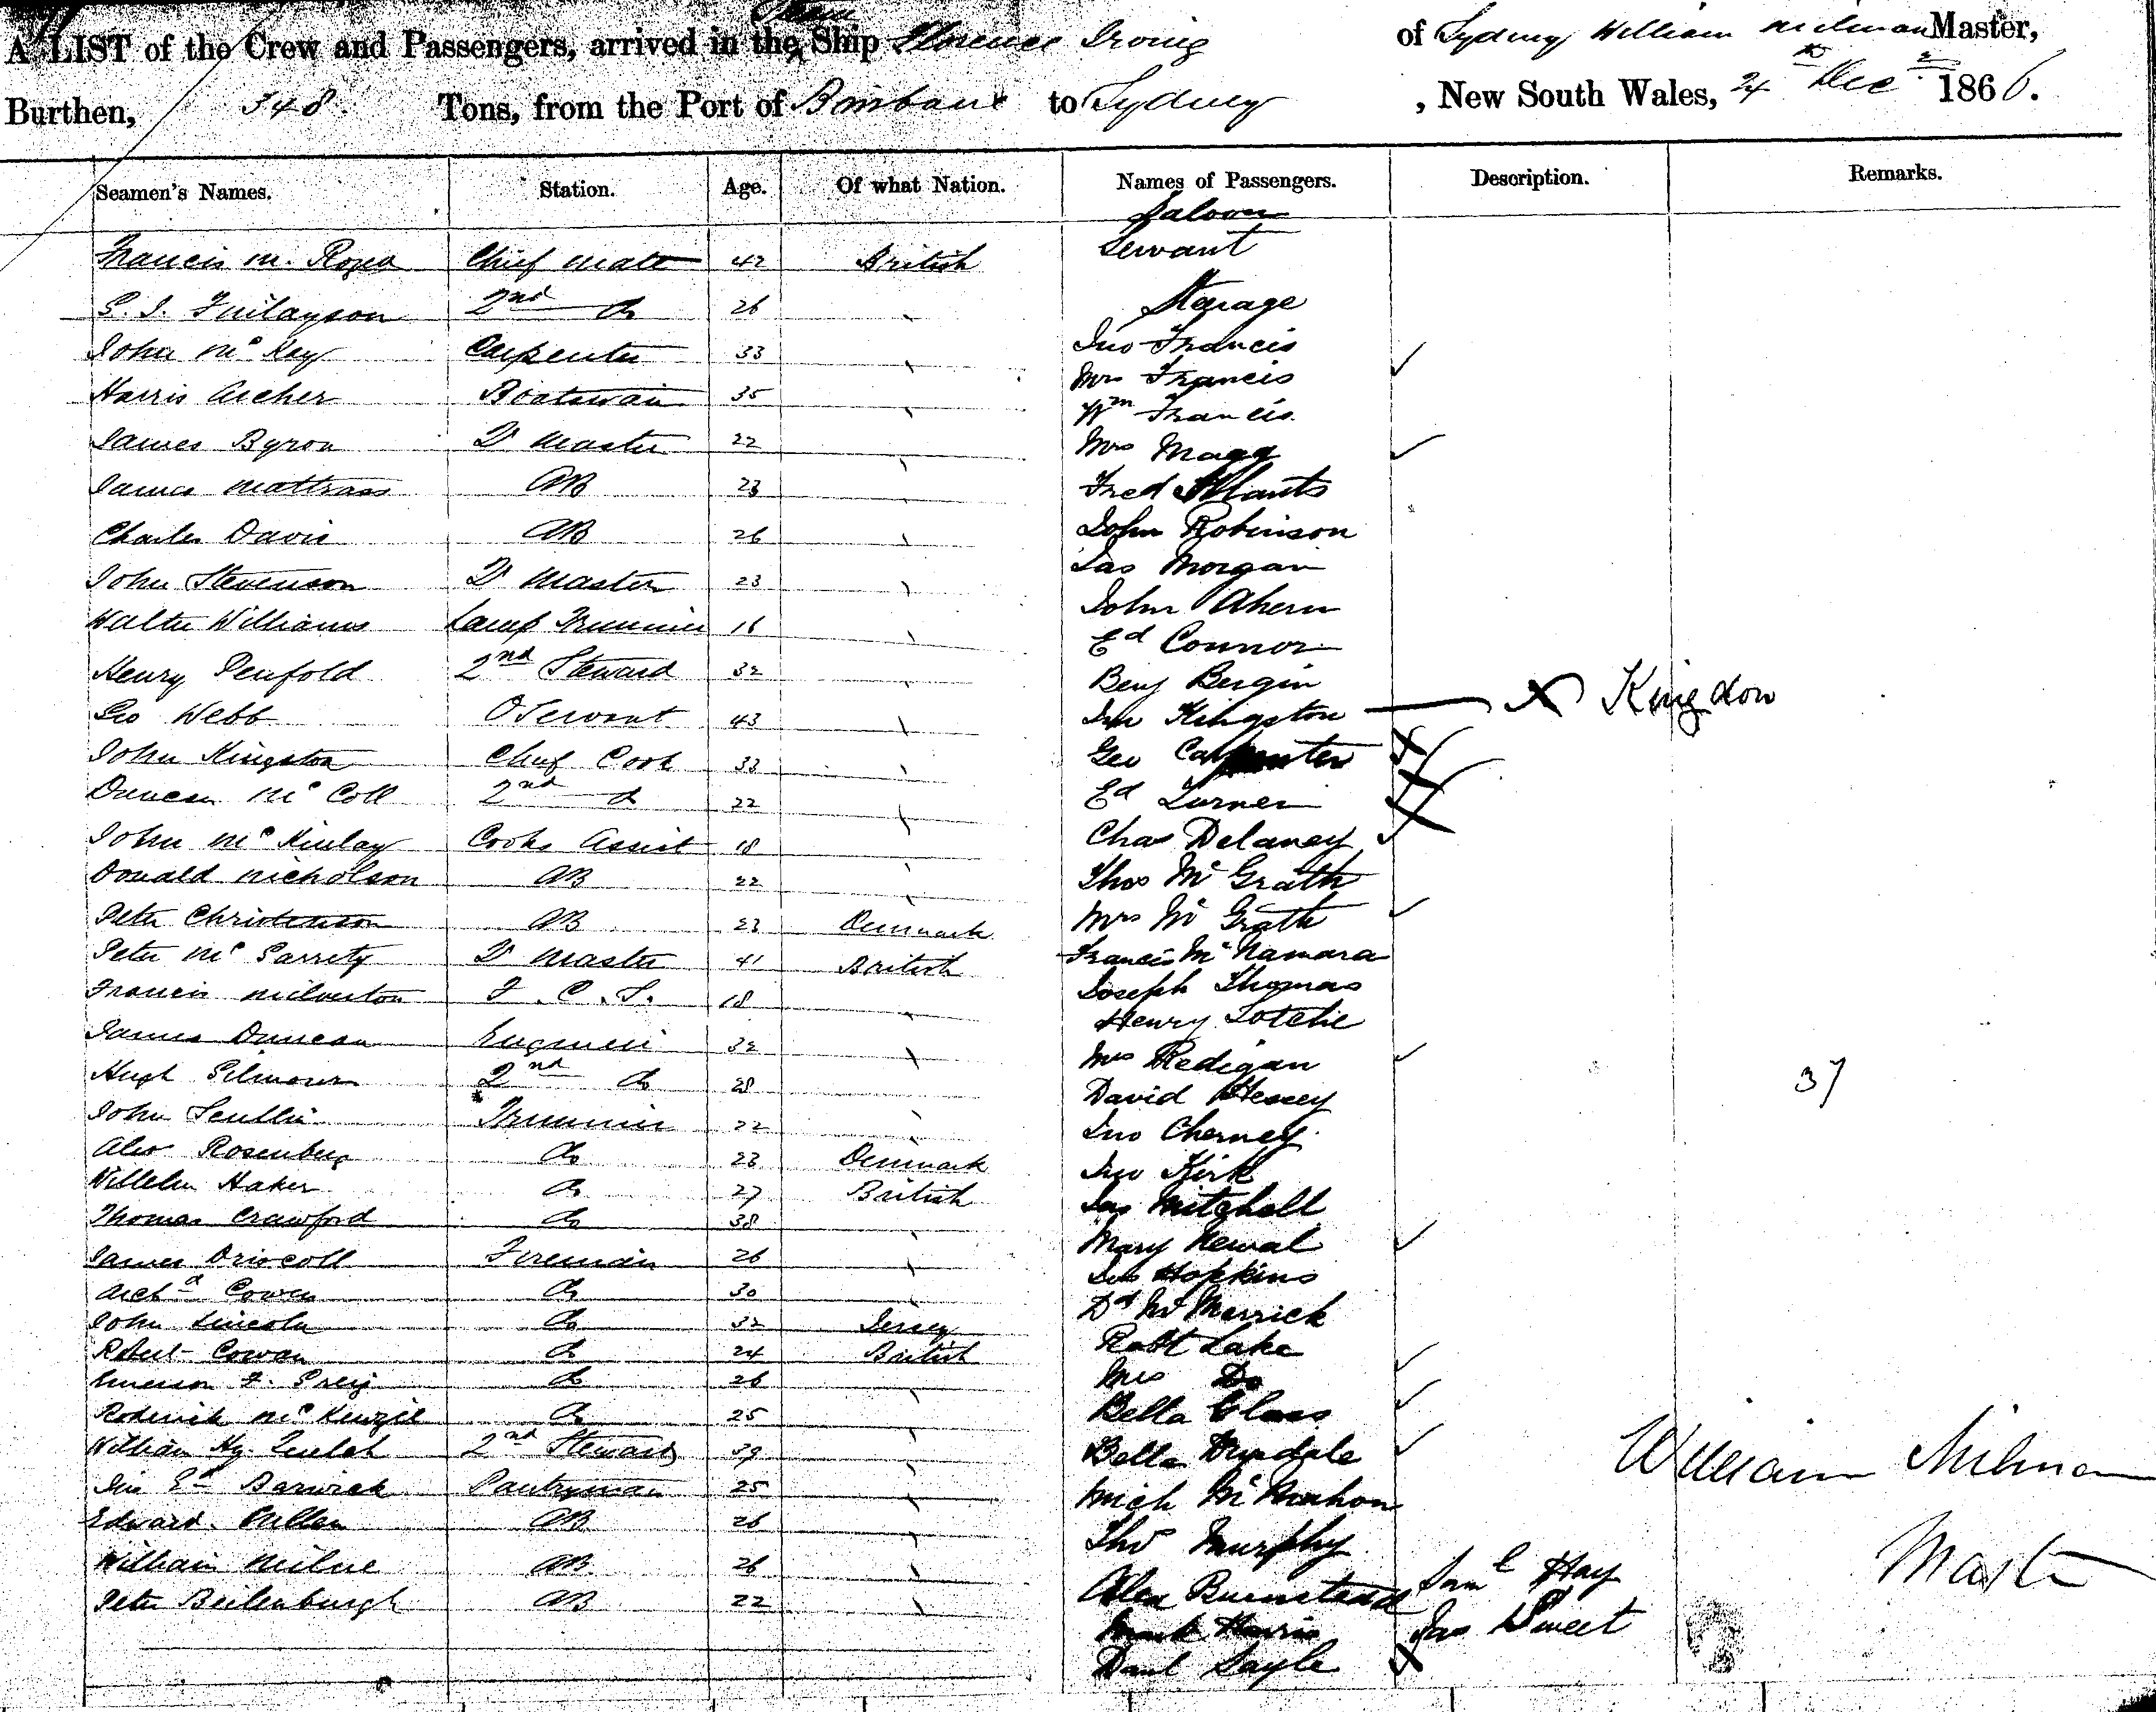 A LIST of the Crew and Passengers, arrived in the Steam Ship Florence Irving of Sydney William Milman Master,
Burthen, 348 Tons, from the Port of to Sydney , New South Wales, 24th Decr 1866.
Seamen's Names. Station. Age. Of what Nation. Names of Passengers. Description. Remarks.
Saloon
Francis M. Chief Mate 42 British Servant
Finlayson 2nd Do 26 Sterage
John McKay Carpenter 33 Jno Francis
Harris Archer Boatswain 35 Mrs Francis
Wm Francis
James Byron Master 22 Mrs Magg
James Mattrass AB 23 Fred
Charles Davis AB 26 John Robinson
John Stevenson Master 23 Jas Morgan
Walter Williams Lamp Trimmer 16 John Ahern
Ed Connor
Henry Penfold 2nd Steward 32 Benj Bergin
Geo Webb 43 Jno Kingston X Kingdon
John Kingston Chief Cook 33 Geo Carpenter
Duncan McColl 2nd Do 22 Ed Turner
John McKinlay Cooks Assist 18 Chas Delaney
Donald Nicholson AB 22 Thos McGrath
Peter Christenson AB 23 Denmark Mrs McGrath
Peter McGarrety Master 41 British Francis McNamara
Francis Milverton F.C.S. 18 Joseph Thomas
Henry Lotchie
James Duncan Engineer 32 Mrs Redigan
Hugh Gilmour 2nd Do 28 David 37
John Scullin Trimmer 22 Jno Cherney
Alex Rosenberg Do 23 Denmark Jno Kirk
Willelm Haker Do 27 British Jas Mitchell
Thomas Crawford Do 38 Mary Newal
James Driscoll Fireman 26 Hopkins
Archd Cowen Do 30 Dd McMerrick
John Lincoln Do 32 Jersey Robt Lake
Robert Cowan Do 24 British Mrs Do
Emerson F. Greig Do 26
Roderick McKenzie Do 25 Bella Glass
William Hy. 2nd Steward 39 Bella
Jno Ed Barwick Pantryman 25 Mich McMahon William Milman
Edward AB 26 Thos Murphy Master
William Milne AB 26 Alex Burnstead Saml Hay
Peter Beilenburgh AB 22 Mark Harris Jas Sweet
Danl Sayle